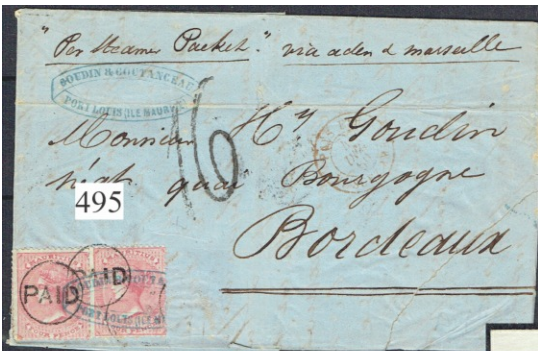 "Per Steamer Packet." via aden & marseille
GOUDIN & COUTANCEAU
PORT LOUIS ILE MAURICE
16
Monsieur Hy Goudin
quai Bourgogne
495
Bordeaux
PAID
PAID
PORT LOUIS